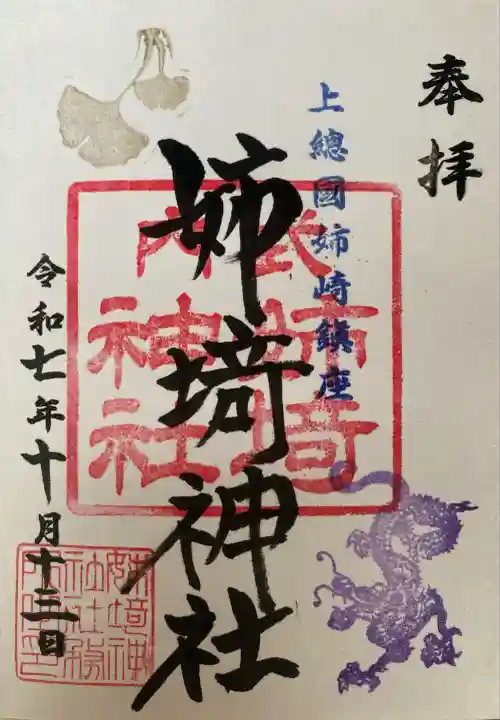 奉拝
上總國姉崎鎮座
姉埼神社
令和七年十月十三日
姉埼神社社務所之印